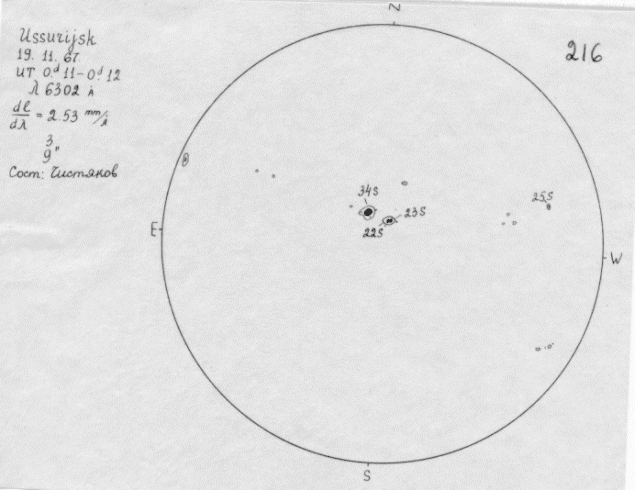 Ussurijsk
19. 11. 67.
UT 0.ᵈ11-0.ᵈ12
λ 6302 Å
dl/dλ = 2.53 mm/Å
3
9"
Сост: Чистяков
N
216
34S
25S
23S
22S
E
W
S